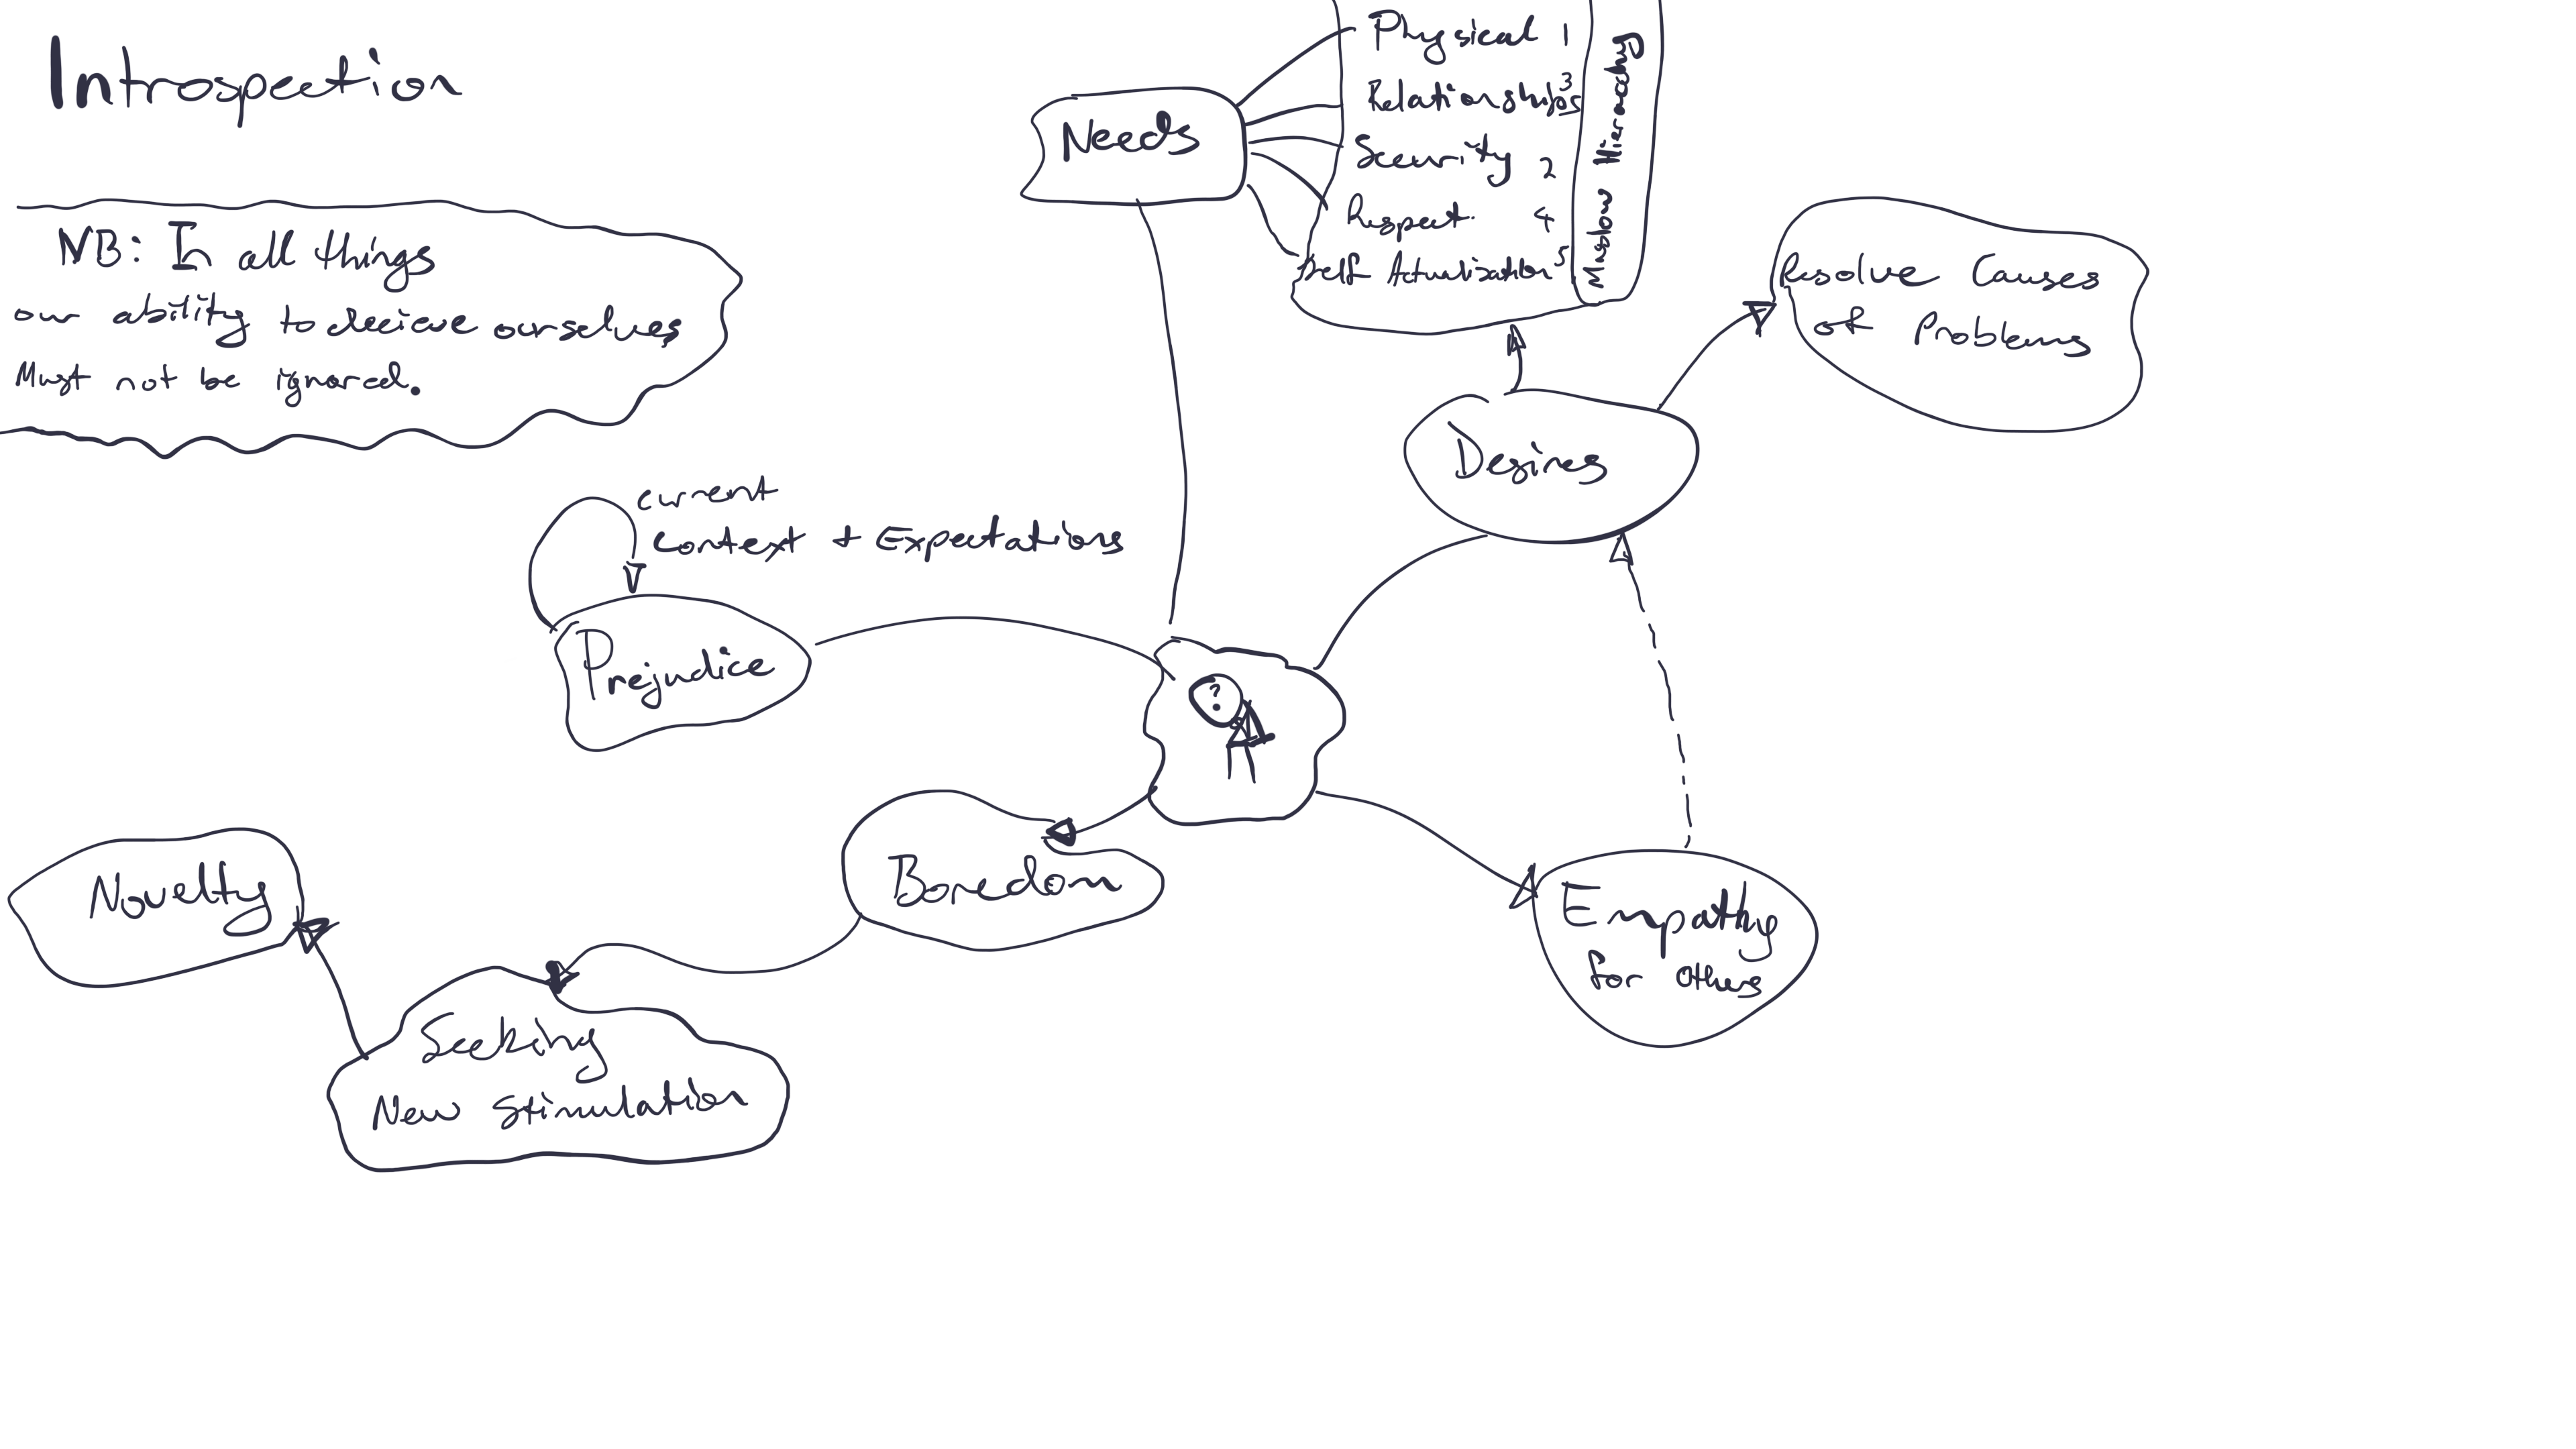 Introspection
NB: In all things
our ability to decieve ourselves
Must not be ignored.
Needs
Physical 1
Relationships 3
Security 2
Respect. 4
Self Actualization 5
Maslow Hierachy
Resolve Causes
of Problems
Desires
current
context + Expectations
Prejudice
?
Boredom
Novelty
Seeking
New Stimulation
Empathy
for others